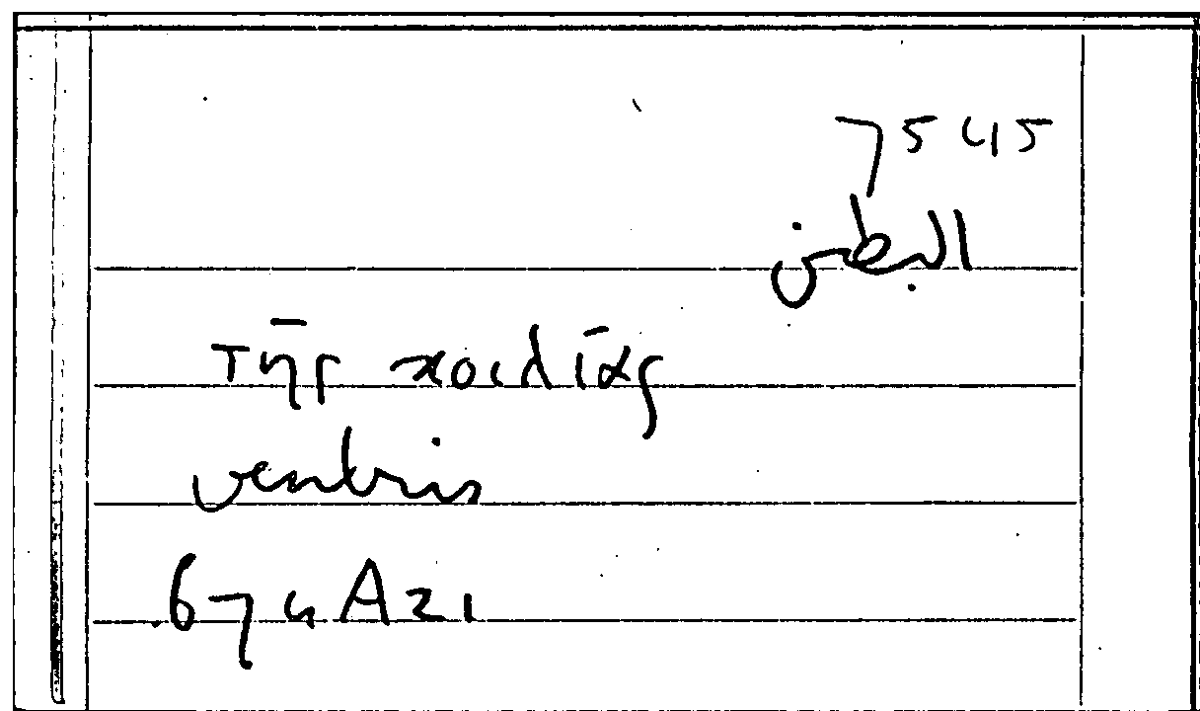 7545
البطن
τῆς κοιλίας
ventris
674 A 21